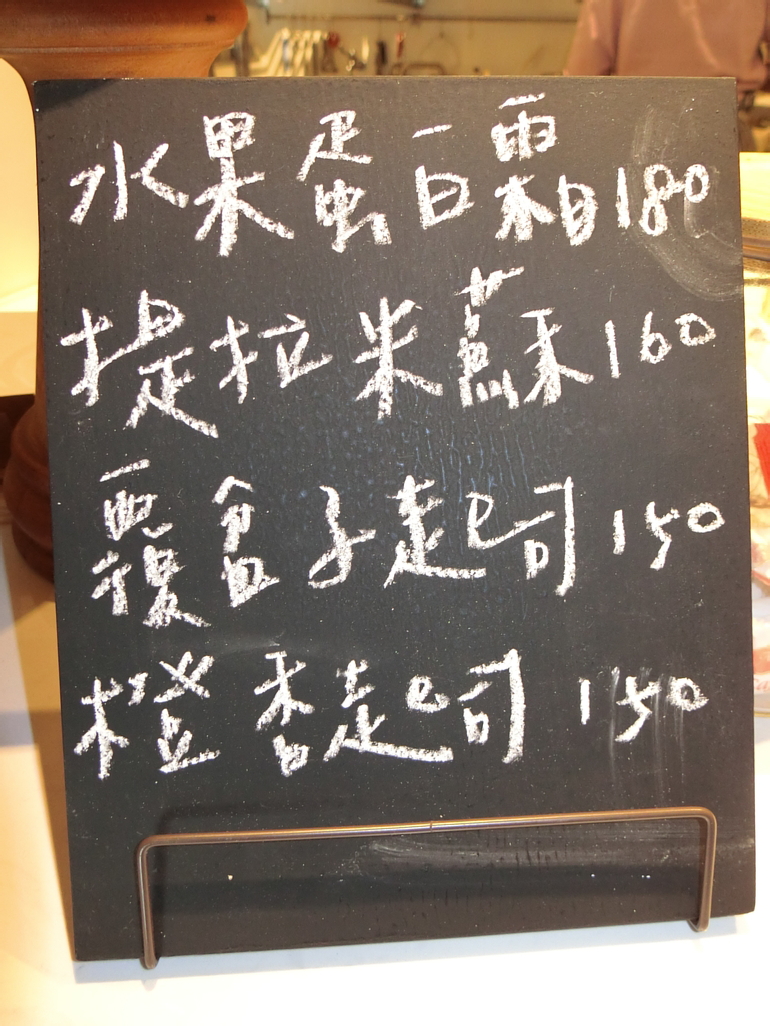 水果蛋白霜180
提拉米蘇160
覆盆子起司150
橙香起司150